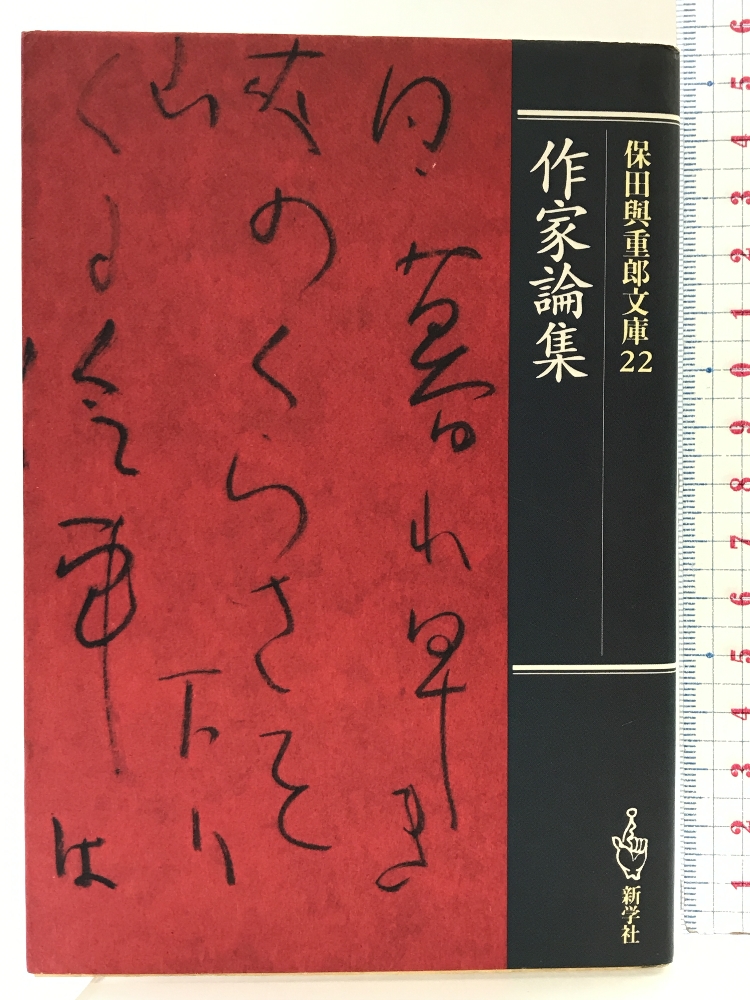 保田與重郎文庫22
作家論集
新学社
日暮れ早き
峡のくらさを
山下り
は
6 5 4 3 2 1 0 9 8 7 6 5 4 3 2 1